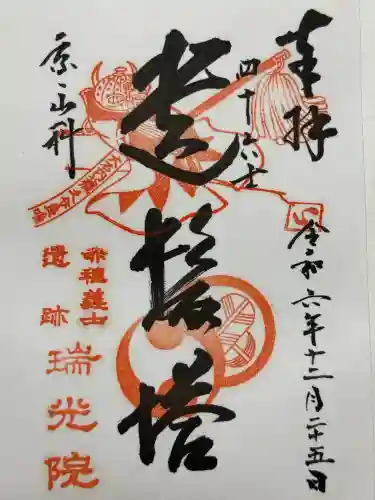 奉拝
令和六年十二月二十五日
四十六士
遺髪塔
京山科
赤穂義士
遺跡
瑞光院